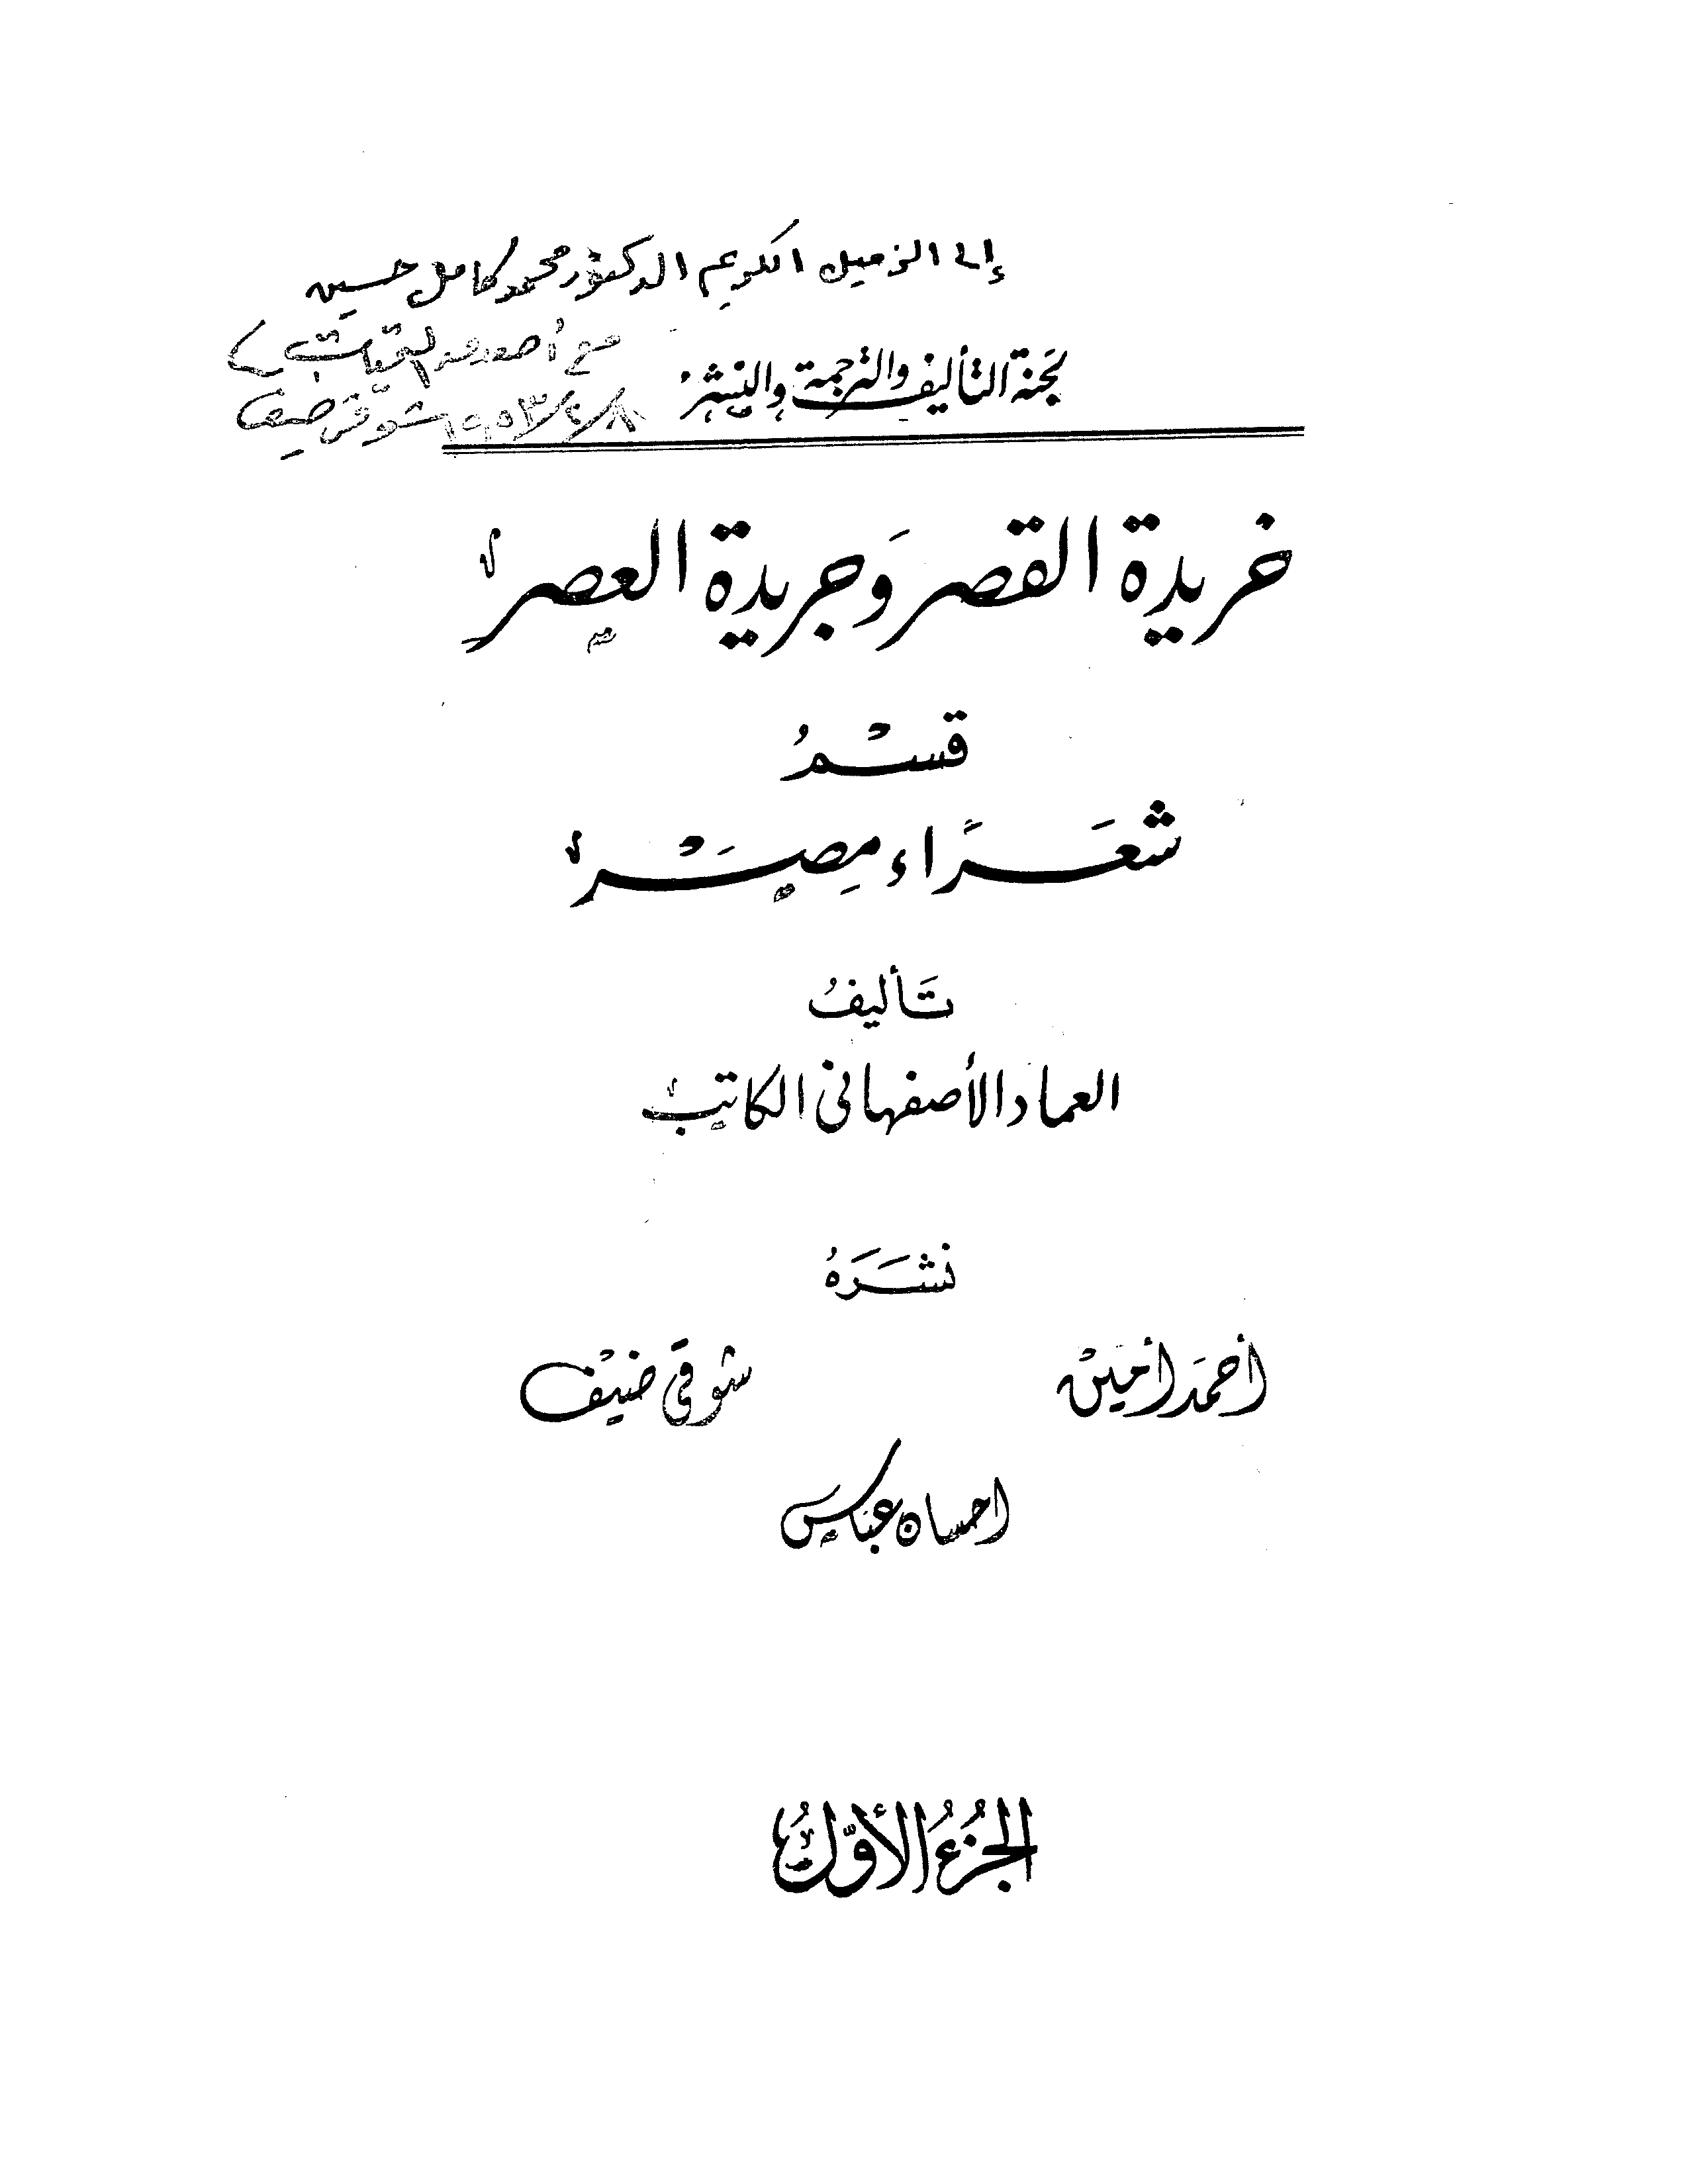 إلى الزميل الكريم الدكتور محمد كامل حسين
مع أصدق التحيات
شوقي ضيف ٨/٤/١٩٥٣
لجنة التأليف والترجمة والنشر
خريدة القصر وَجريدة العصر
قسْمُ
شعَرَاء مِصَيْر
تَأليفُ
العماد الأصفهاني الكاتب
نشَرَهُ
أحمَد أمَين شوقي ضيْف
احسان عباس
الجُزءُ الأوّلُ